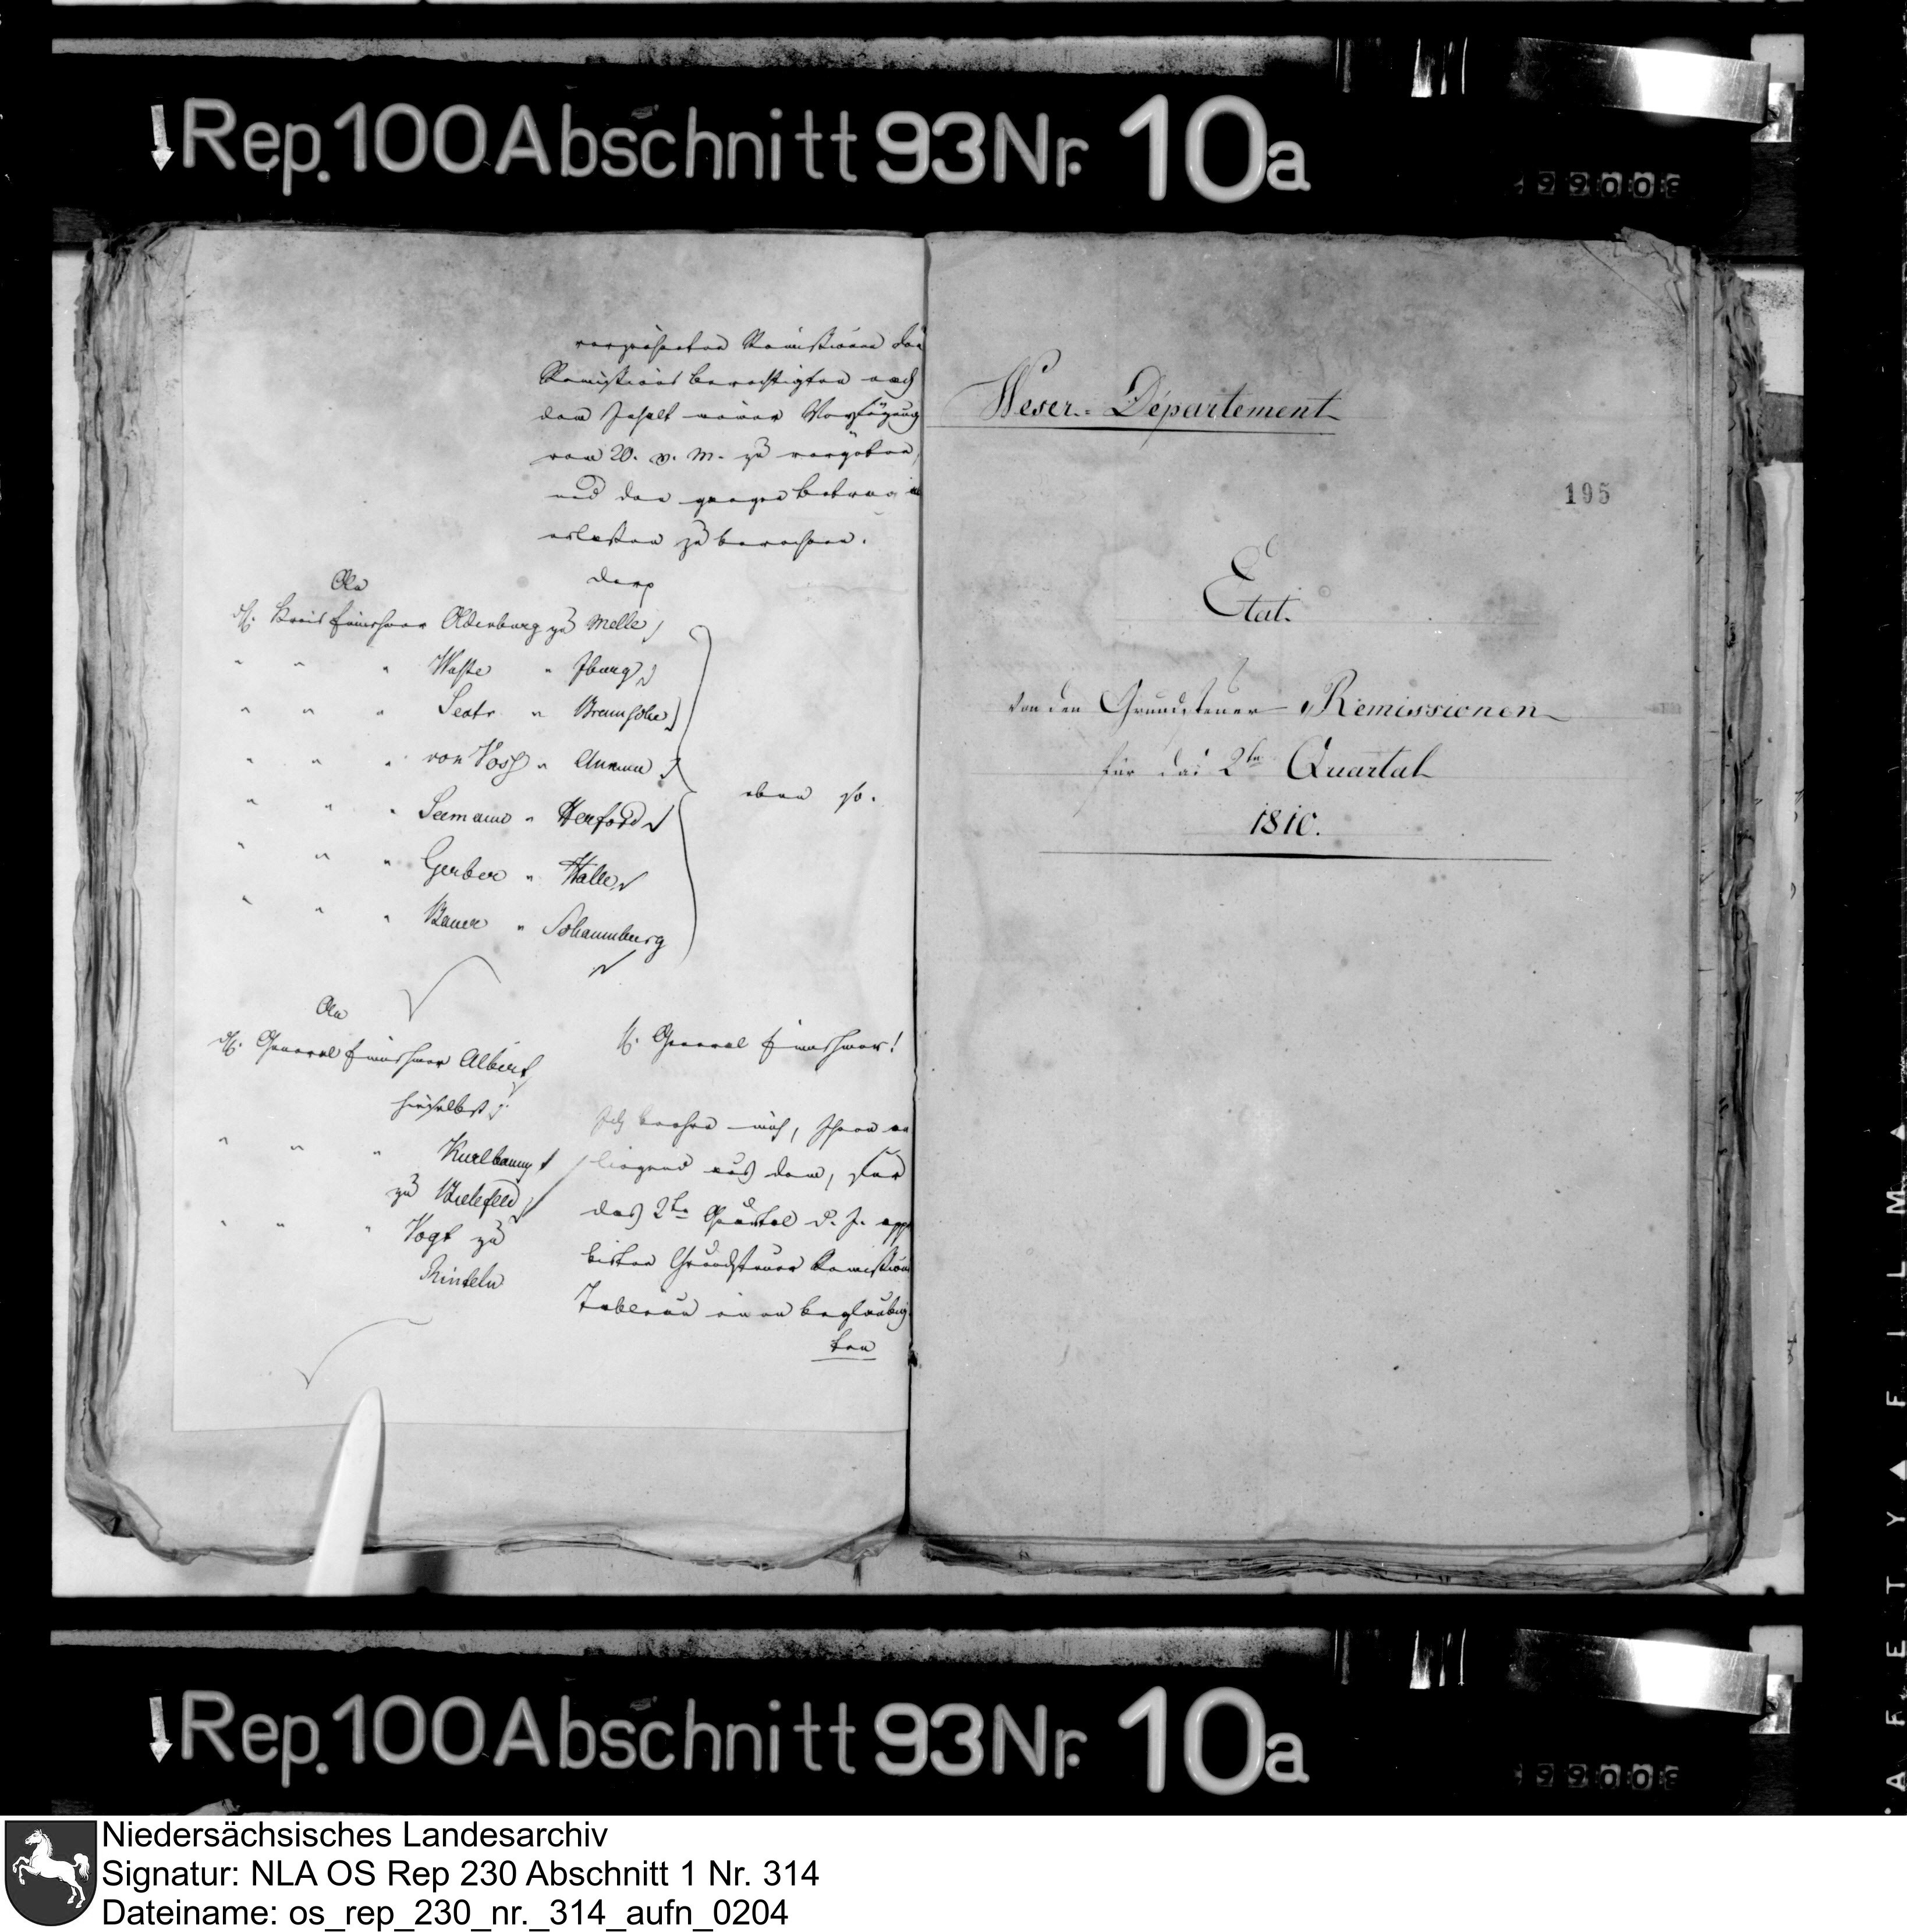 Rep. 100 Abschnitt 93 Nr. 10a
Remissions berechtigten nach
dem Inhalt meiner Verfügung
vom 20. v. M. zu vergüten,
und den ganzen Betrag
zu berechnen.
An
Kreis Einnehmer Oldenburg zu Melle
" " " " Iburg
" " " "
" " " von Voss "
" " " Seemann " Herford
" " " Gerber " Halle
" " " Bauer " Schaumburg
eben so.
An
General Einnehmer Albers
hierselbst
" " "
zu Bielefeld
" " " Vogt zu
Rinteln
General Einnehmer!
Ich beehre mich, Ihnen an
liegend aus dem, für
das 2te Quartal d. J. app
birten Grundsteuer Remissions
Tableau einen beglaubig
ten
Weser-Département
195
Etat
von den Grundsteuer Remissionen
für das 2te Quartal
1810.
Rep. 100 Abschnitt 93 Nr. 10a
SAFETY FILM
Niedersächsisches Landesarchiv
Signatur: NLA OS Rep 230 Abschnitt 1 Nr. 314
Dateiname: os_rep_230_nr._314_aufn_0204